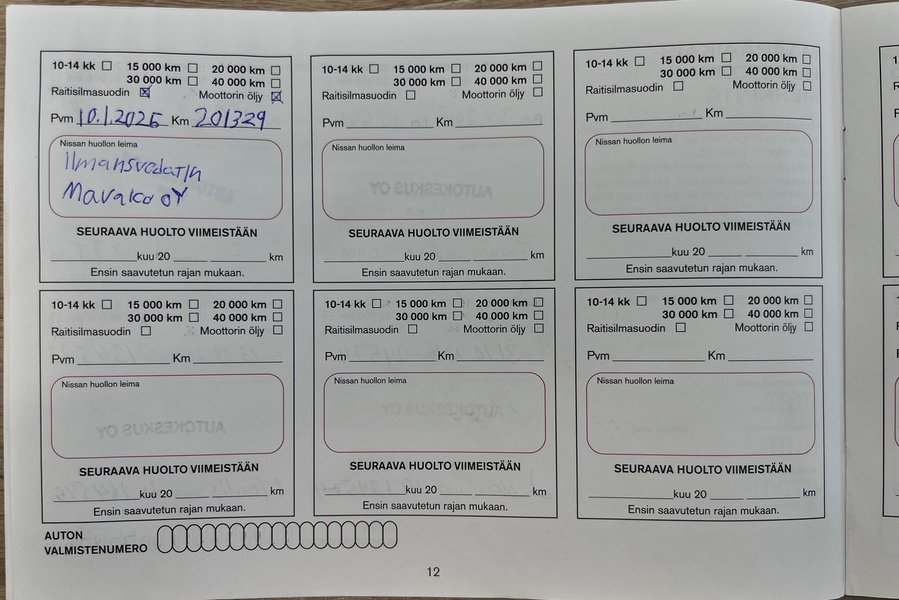 10-14 kk 15 000 km 20 000 km
30 000 km 40 000 km
Raitisilmasuodin Moottorin öljy
Pvm 10.1.2025 Km 201329
Nissan huollon leima
Ilmansvodatin
Mavako oY
SEURAAVA HUOLTO VIIMEISTÄÄN
kuu 20 km
Ensin saavutetun rajan mukaan.
10-14 kk 15 000 km 20 000 km
30 000 km 40 000 km
Raitisilmasuodin Moottorin öljy
Pvm Km
Nissan huollon leima
SEURAAVA HUOLTO VIIMEISTÄÄN
kuu 20 km
Ensin saavutetun rajan mukaan.
10-14 kk 15 000 km 20 000 km
30 000 km 40 000 km
Raitisilmasuodin Moottorin öljy
Pvm Km
Nissan huollon leima
SEURAAVA HUOLTO VIIMEISTÄÄN
kuu 20 km
Ensin saavutetun rajan mukaan.
10-14 kk 15 000 km 20 000 km
30 000 km 40 000 km
Raitisilmasuodin Moottorin öljy
Pvm Km
Nissan huollon leima
SEURAAVA HUOLTO VIIMEISTÄÄN
kuu 20 km
Ensin saavutetun rajan mukaan.
10-14 kk 15 000 km 20 000 km
30 000 km 40 000 km
Raitisilmasuodin Moottorin öljy
Pvm Km
Nissan huollon leima
SEURAAVA HUOLTO VIIMEISTÄÄN
kuu 20 km
Ensin saavutetun rajan mukaan.
10-14 kk 15 000 km 20 000 km
30 000 km 40 000 km
Raitisilmasuodin Moottorin öljy
Pvm Km
Nissan huollon leima
SEURAAVA HUOLTO VIIMEISTÄÄN
kuu 20 km
Ensin saavutetun rajan mukaan.
AUTON
VALMISTENUMERO
12